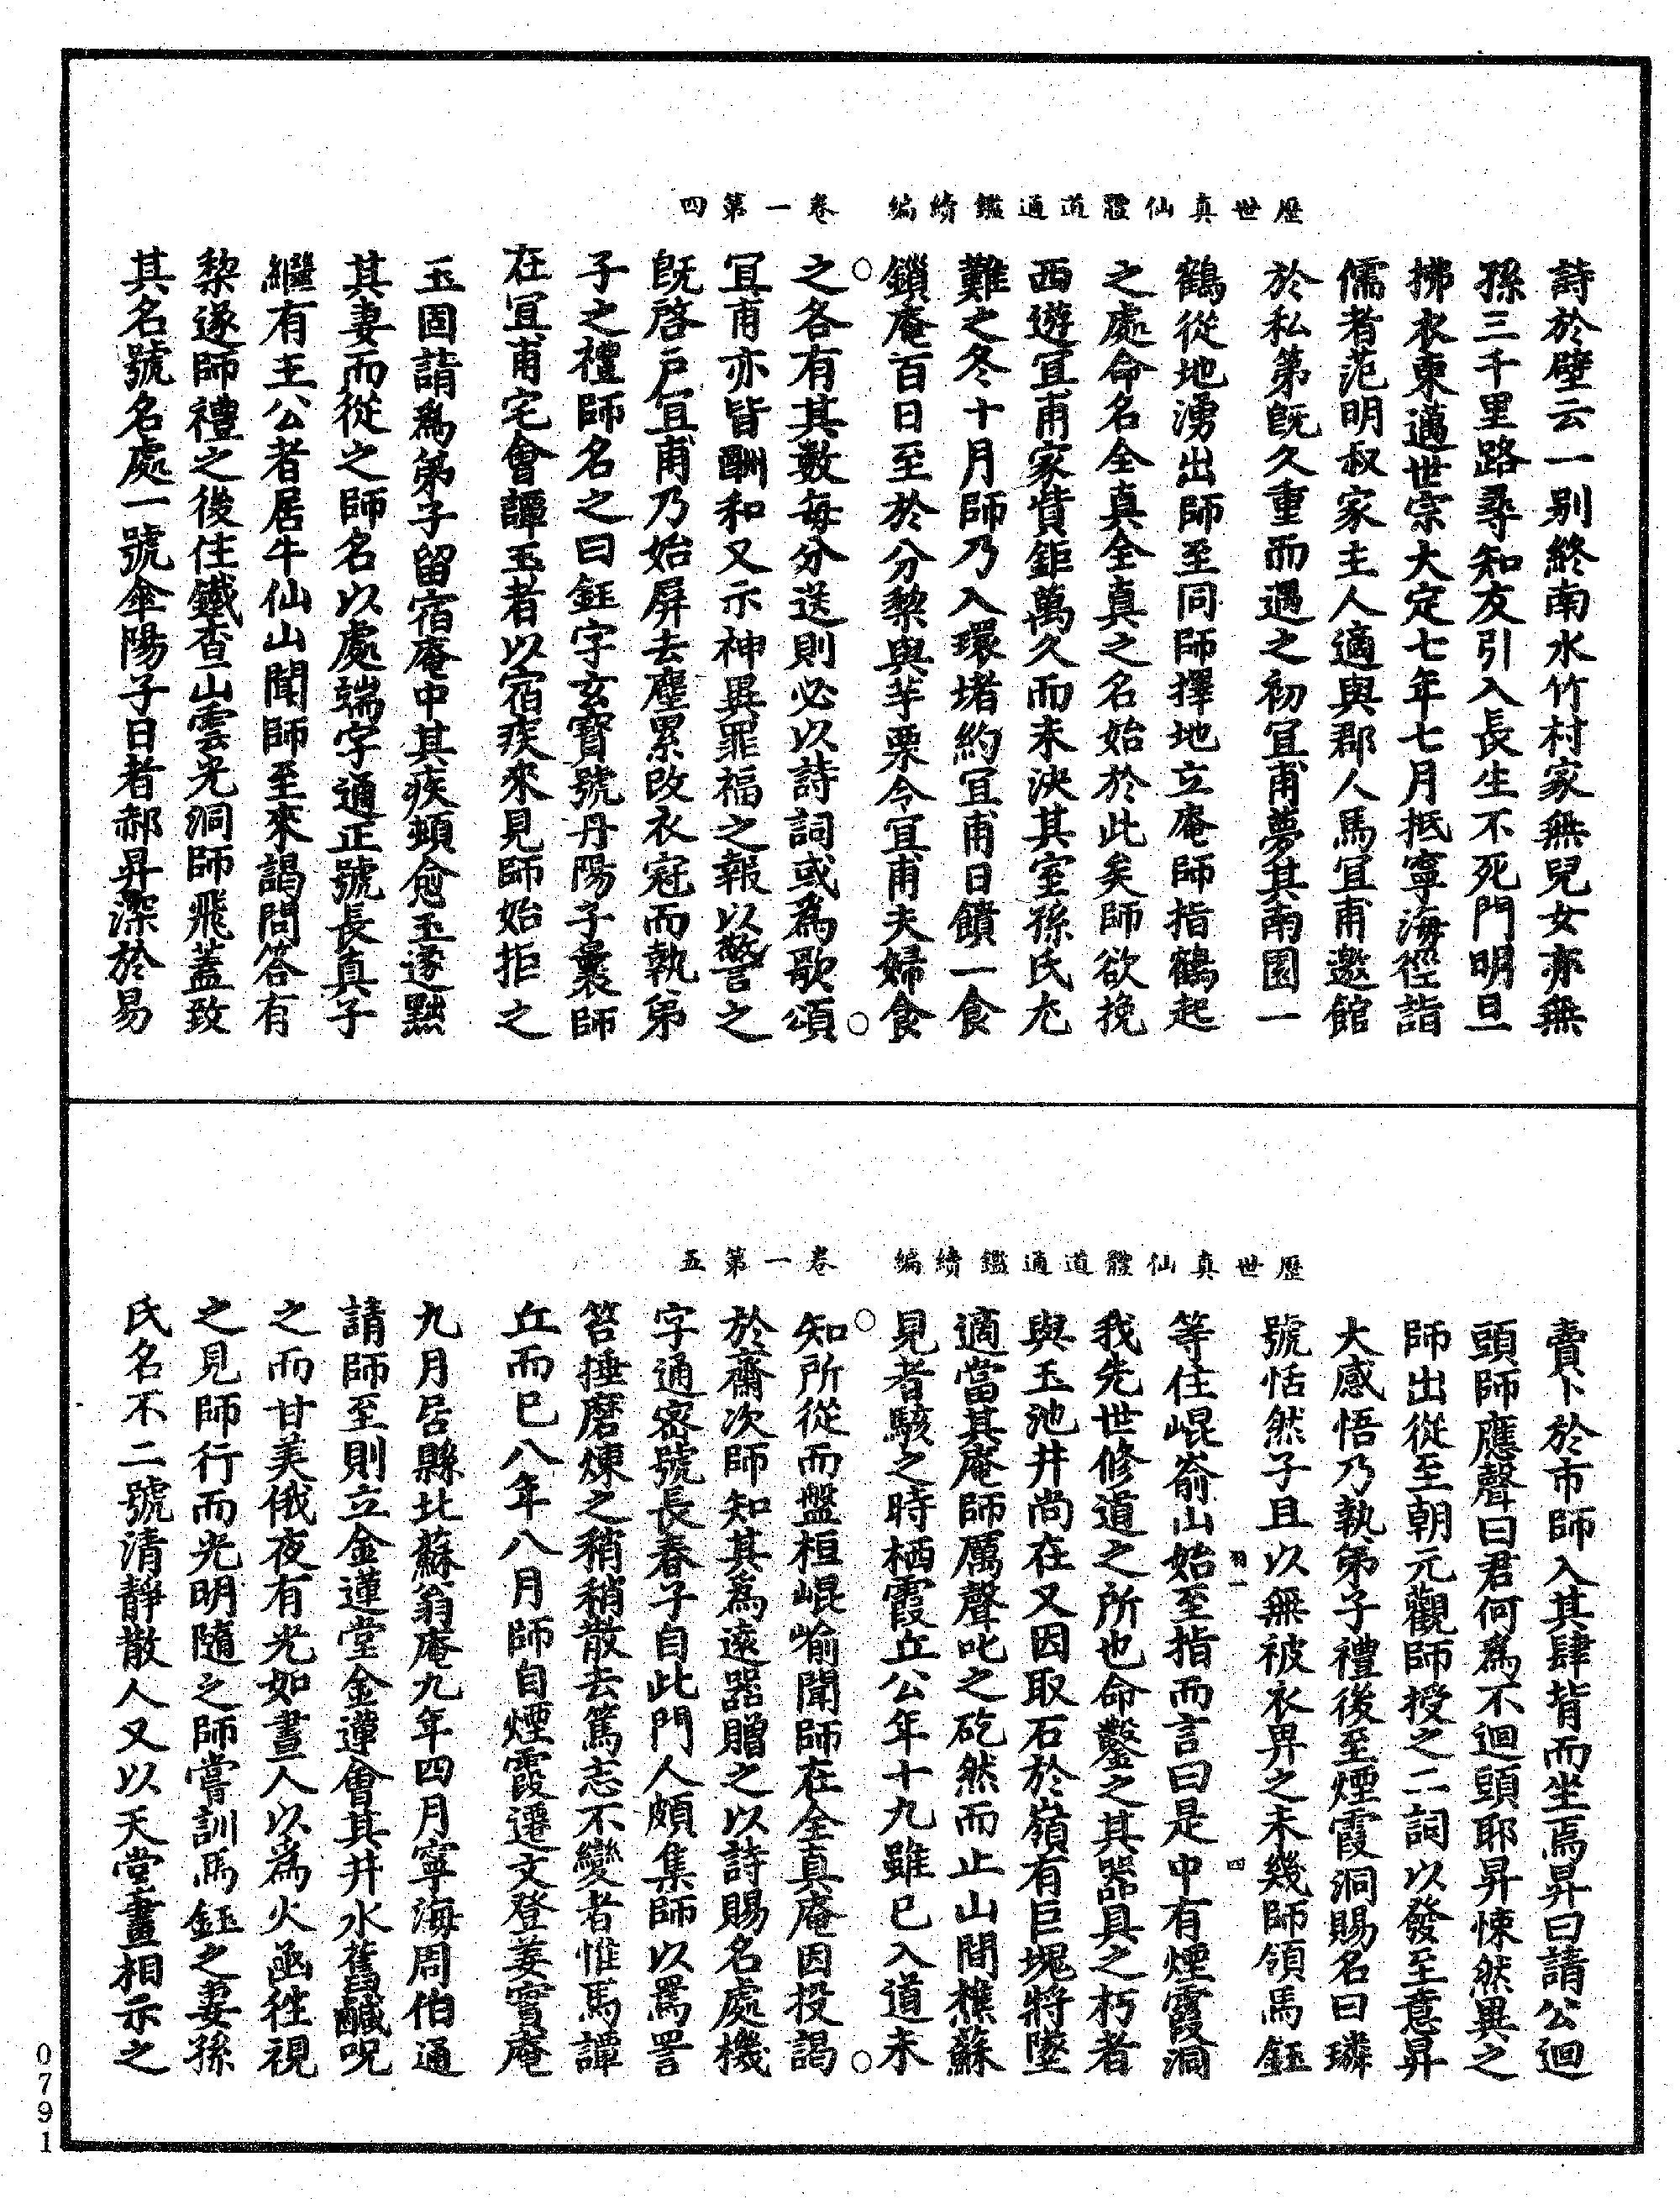 歷世真仙體道通鑑續編　卷一第四
詩於壁云一別終南水竹村家無兒女亦無
孫三千里路尋知友引入長生不死門明旦
拂衣東邁世宗大定七年七月抵寧海徑詣
儒者范明叔家主人適與郡人馬宜甫邀館
於私第既久重而遇之初宜甫夢其南園一
鶴從地湧出師至同師擇地立庵師指鶴起
之處命名全真全真之名始於此矣師欲挽
西遊宜甫家貲鉅萬久而未決其室孫氏尤
難之冬十月師乃入環堵約宜甫日饋一食
鎖庵百日至於分梨與芋栗令宜甫夫婦食
之各有其數每分送則必以詩詞或為歌頌
宜甫亦皆酬和又示神異罪福之報以警之
既啓戶宜甫乃始屏去塵累改衣冠而執弟
子之禮師名之曰鈺字玄寶號丹陽子裏師
在宜甫宅會譚玉者以宿疾來見師始拒之
玉固請為弟子留宿庵中其疾頓愈玉遂黜
其妻而從之師名以處端字通正號長真子
繼有王公者居牛仙山聞師至來謁問答有
契遂師禮之後住鐵查山雲光洞師飛蓋致
其名號名處一號傘陽子曰者郝昇深於易
歷世真仙體道通鑑續編　卷一第五
賣卜於市師入其肆背而坐焉昇曰請公迴
頭師應聲曰君何為不迴頭耶昇悚然異之
師出從至朝元觀師授之二詞以發至意昇
大感悟乃執弟子禮後至煙霞洞賜名曰璘
號恬然子且以無被衣畀之未幾師領馬鈺
等住崐嵛山始至指而言曰是中有煙霞洞
羽一　四
我先世修道之所也命鑿之其器具之朽者
與玉池井尚在又因取石於嶺有巨塊將墜
適當其庵師厲聲叱之矻然而止山間樵蘇
見者駭之時栖霞丘公年十九雖已入道未
知所從而盤桓崐嵛聞師在全真庵因投謁
於齋次師知其為遠器贈之以詩賜名處機
字通密號長春子自此門人頗集師以罵詈
笞捶磨煉之稍稍散去篤志不變者惟馬譚
丘而已八年八月師自煙霞遷文登姜實庵
九月居縣北蘇翁庵九年四月寧海周伯通
請師至則立金蓮堂金蓮會其井水舊鹹呪
之而甘美俄夜有光如晝人以為火亟往視
之見師行而光明隨之師嘗訓馬鈺之妻孫
氏名不二號清靜散人又以天堂畫相示之
0791